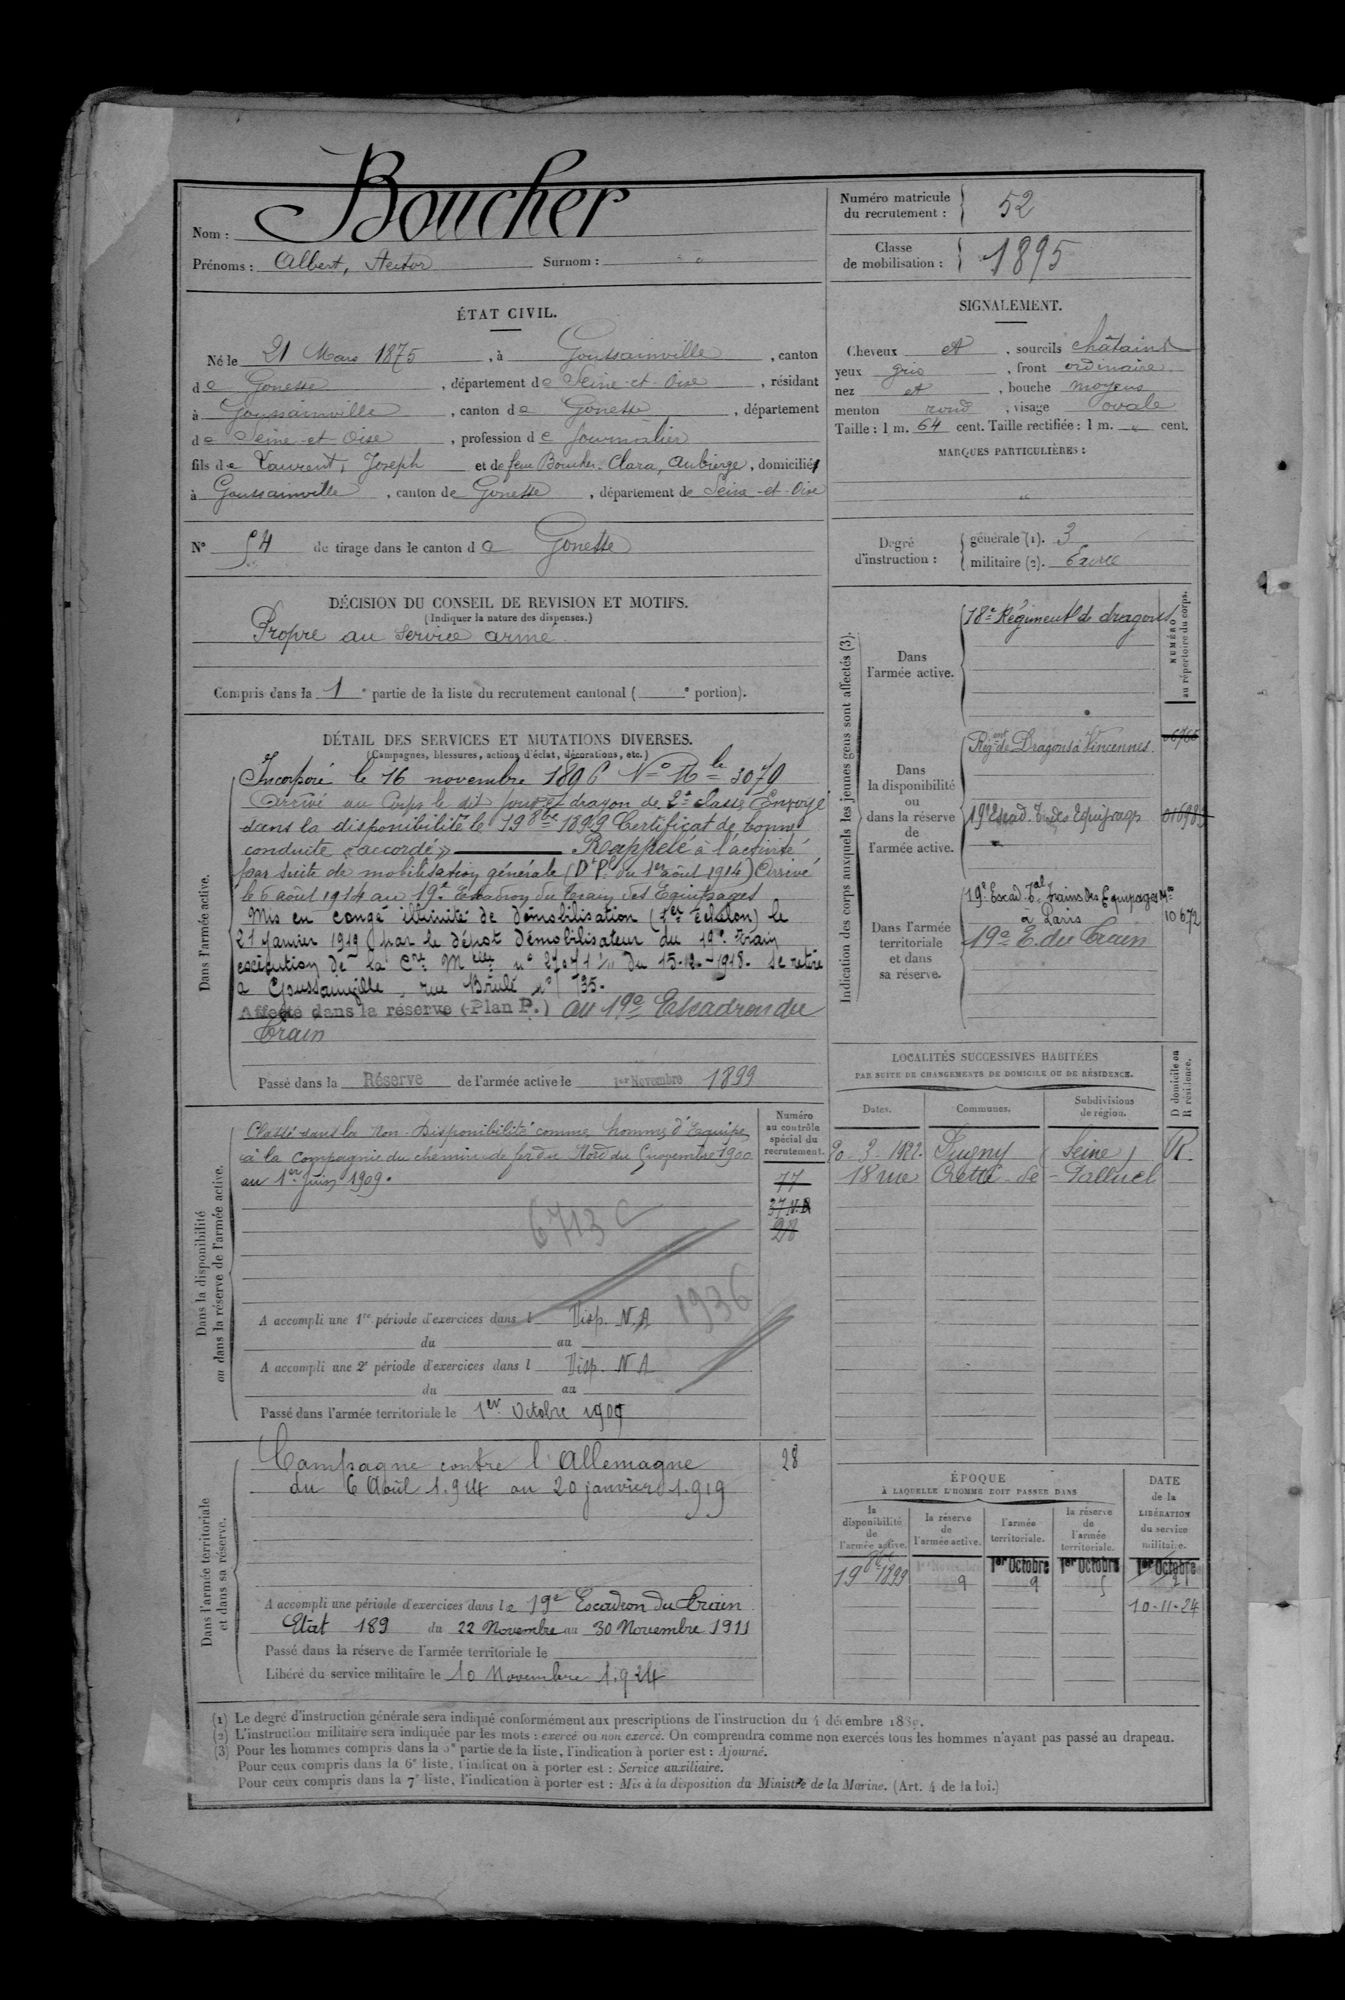 Nom : Boucher
Prénoms : Albert, Hector Surnom :
ÉTAT CIVIL.
Né le 21 Mars 1875, à Goussainville, canton
de Gonesse, département de Seine-et-Oise, résidant
à Goussainville, canton de Gonesse, département
de Seine-et-Oise, profession de Journalier
fils de Laurent, Joseph et de feue Boucher Clara, Aubierge, domiciliés
à Goussainville, canton de Gonesse, département de Seine-et-Oise
N° 54 de tirage dans le canton de Gonesse
DÉCISION DU CONSEIL DE REVISION ET MOTIFS.
(Indiquer la nature des dispenses.)
Propre au service armé.
Compris dans la 1e partie de la liste du recrutement cantonal ( e portion).
DÉTAIL DES SERVICES ET MUTATIONS DIVERSES.
(Campagnes, blessures, actions d'éclat, décorations, etc.)
Dans l'armée active.
Incorporé le 16 novembre 1896 No Mle 3070
Arrivé au Corps le dit jour et dragon de 2e classe Envoyé
dans la disponibilité le 19 8bre 1899 Certificat de bonne
conduite « accordé » Rappelé à l'activité
par suite de mobilisation générale (Dt Pl du 1er août 1914) Arrivé
le 6 août 1914 au 19e Escadron du Train des Equipages
Mis en congé illimité de démobilisation (1er Echelon) le
21 Janvier 1919 par le dépôt démobilisateur du 19e train
exécution de la Cre Mlle n° 27071 du 15-12-1918. Se retire
à Goussainville, rue Brulé n° 135.
Affecté dans la réserve (Plan P.) au 19e Escadron du
Train
Passé dans la Réserve de l'armée active le 1er Novembre 1899
Dans la disponibilité
ou dans la réserve de l'armée active.
Classé dans la Non-Disponibilité comme homme d'Equipe
à la Compagnie du chemin de fer du Nord du 6 novembre 1900
au 1er Juin 1909.
6713 C
1936
A accompli une 1re période d'exercices dans l Disp. N.A
du au
A accompli une 2e période d'exercices dans l Disp. N A
du au
Passé dans l'armée territoriale le 1er Octobre 1909
Numéro
au contrôle
spécial du
recrutement.
77
37 N.A
28
Dans l'armée territoriale
et dans sa réserve.
Campagne contre l'Allemagne
du 6 Août 1.914 au 20 janvier 1.919
28
A accompli une période d'exercices dans le 19e Escadron du Train
Etat 189 du 22 Novembre au 30 Novembre 1911
Passé dans la réserve de l'armée territoriale le
Libéré du service militaire le 10 Novembre 1.924
Numéro matricule
du recrutement : 52
Classe
de mobilisation : 1895
SIGNALEMENT.
Cheveux et, sourcils châtains
yeux gris, front ordinaire
nez et, bouche moyens
menton rond, visage ovale
Taille : 1 m. 64 cent. Taille rectifiée : 1 m. cent.
MARQUES PARTICULIÈRES :
Degré
d'instruction :
générale (1). 3
militaire (2). Exercé
Indication des corps auxquels les jeunes gens sont affectés (3).
NUMÉRO
au répertoire du corps.
Dans
l'armée active.
18e Régiment de dragons
Dans
la disponibilité
ou
dans la réserve
de
l'armée active.
Régiment de Dragons à Vincennes.
19e Escad. T. des Equipages
Dans l'armée
territoriale
et dans
sa réserve.
19e Escad. Tal trains des Equipages Mle
à Paris 10672
19e E. du Train
LOCALITÉS SUCCESSIVES HABITÉES
PAR SUITE DE CHANGEMENTS DE DOMICILE OU DE RÉSIDENCE.
Dates. Communes. Subdivisions
de région.
D domicile ou
R résidence.
20-3-1922 Seine R.
18 rue
ÉPOQUE
À LAQUELLE L'HOMME DOIT PASSER DANS
la
disponibilité
de
l'armée active.
la réserve
de
l'armée active.
l'armée
territoriale.
la réserve
de
l'armée
territoriale.
DATE
de la
LIBÉRATION
du service
militaire.
19 8bre 1899
1er Octobre 9
1er Octobre
1er Octobre 21
10-11-24
(1) Le degré d'instruction générale sera indiqué conformément aux prescriptions de l'instruction du 4 décembre 1889.
(2) L'instruction militaire sera indiquée par les mots : exercé ou non exercé. On comprendra comme non exercés tous les hommes n'ayant pas passé au drapeau.
(3) Pour les hommes compris dans la 5e partie de la liste, l'indication à porter est : Ajourné.
Pour ceux compris dans la 6e liste, l'indication à porter est : Service auxiliaire.
Pour ceux compris dans la 7e liste, l'indication à porter est : Mis à la disposition du Ministre de la Marine. (Art. 4 de la loi.)